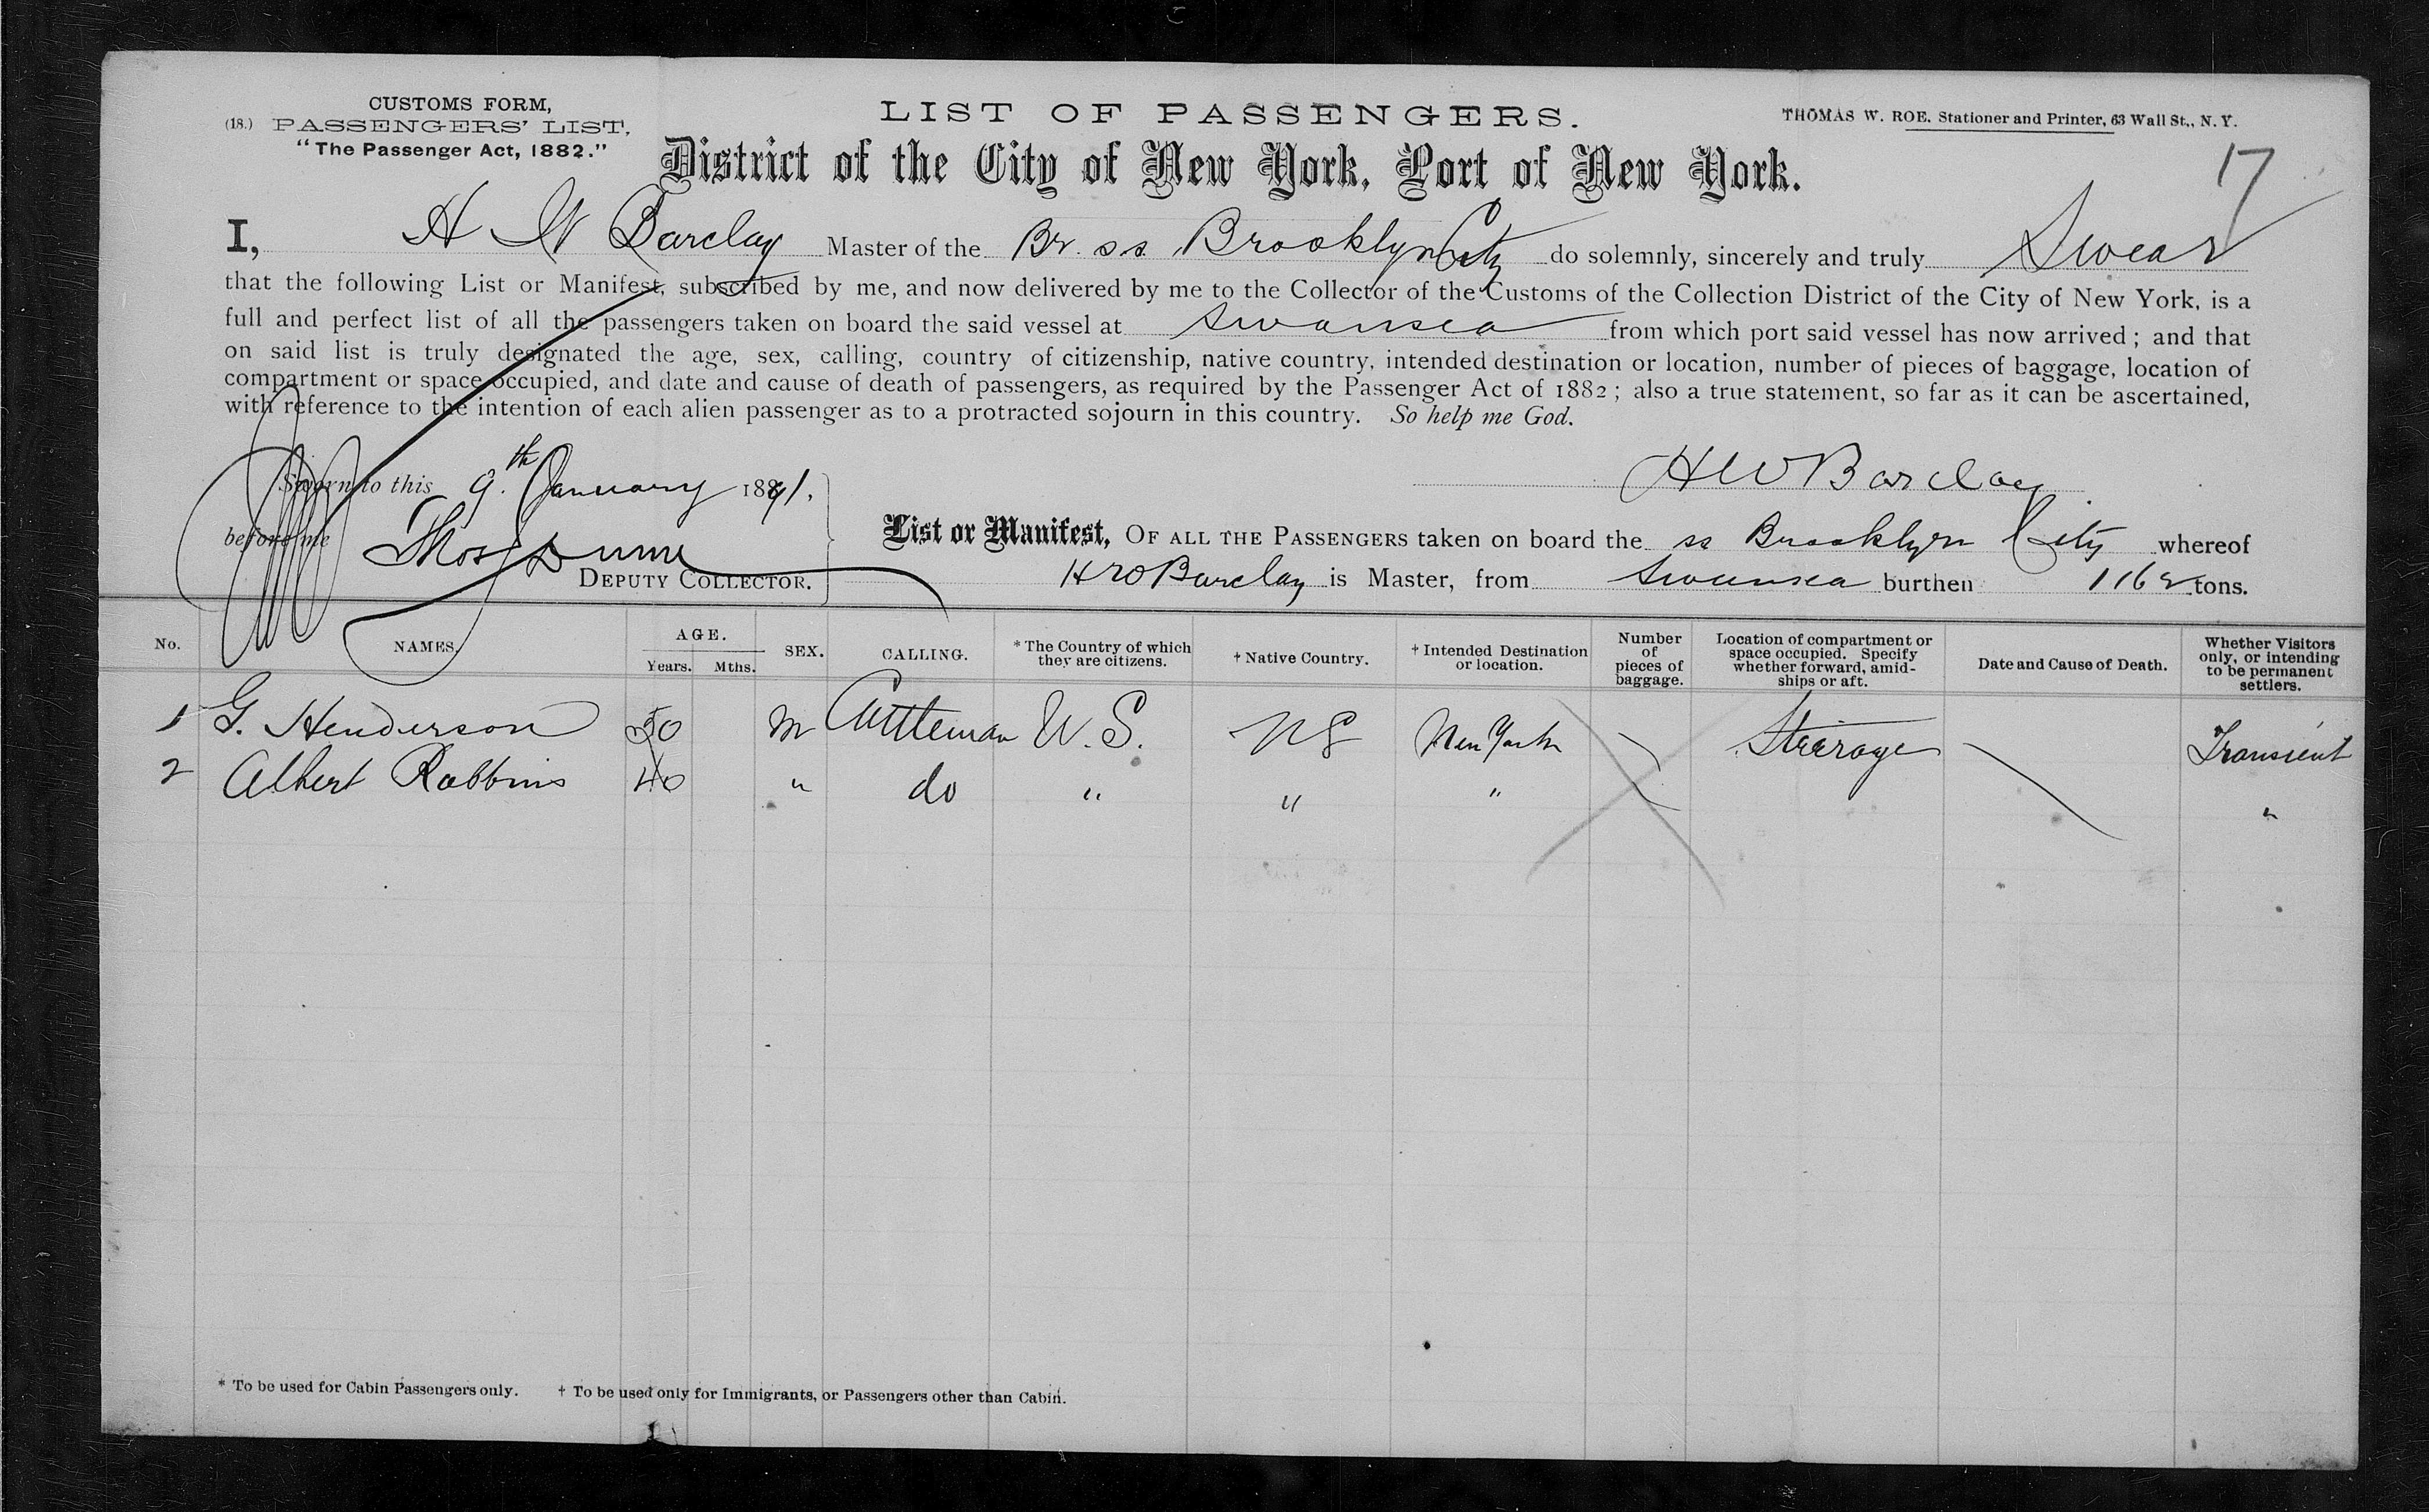 CUSTOMS FORM,
(18.) PASSENGERS' LIST,
"The Passenger Act, 1882."
LIST OF PASSENGERS.
THOMAS W. ROE. Stationer and Printer, 63 Wall St., N. Y.
District of the City of New York, Port of New York.
17
I, H W Barclay Master of the Br. ss. Brooklyn City do solemnly, sincerely and truly Swear
that the following List or Manifest, subscribed by me, and now delivered by me to the Collector of the Customs of the Collection District of the City of New York, is a
full and perfect list of all the passengers taken on board the said vessel at Swansea from which port said vessel has now arrived; and that
on said list is truly designated the age, sex, calling, country of citizenship, native country, intended destination or location, number of pieces of baggage, location of
compartment or space occupied, and date and cause of death of passengers, as required by the Passenger Act of 1882; also a true statement, so far as it can be ascertained,
with reference to the intention of each alien passenger as to a protracted sojourn in this country. So help me God.
H W Barclay
Sworn to this 9th January 1891.
before me Thos Dunn
DEPUTY COLLECTOR.
List or Manifest, OF ALL THE PASSENGERS taken on board the ss Brooklyn City whereof
H W Barclay is Master, from Swansea burthen 1162 tons.
No. NAMES. AGE. Years. Mths. SEX. CALLING. * The Country of which they are citizens. † Native Country. † Intended Destination or location. Number of pieces of baggage. Location of compartment or space occupied. Specify whether forward, amidships or aft. Date and Cause of Death. Whether Visitors only, or intending to be permanent settlers.
1 G. Henderson 50 M Cattleman U.S. US New York Steerage Transient
2 Albert Robbins 40 " do " " " "
* To be used for Cabin Passengers only. † To be used only for Immigrants, or Passengers other than Cabin.